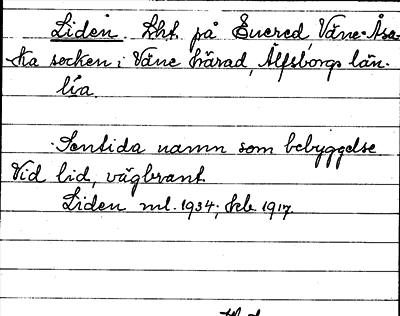 Liden. Lht på Enered, Väne-Åsa-
ka socken i Väne härad, Älfsborgs län.
lía.
Sentida namn som bebyggelse
vid lid, vägbrant.
Liden ml. 1934; skb 1917.